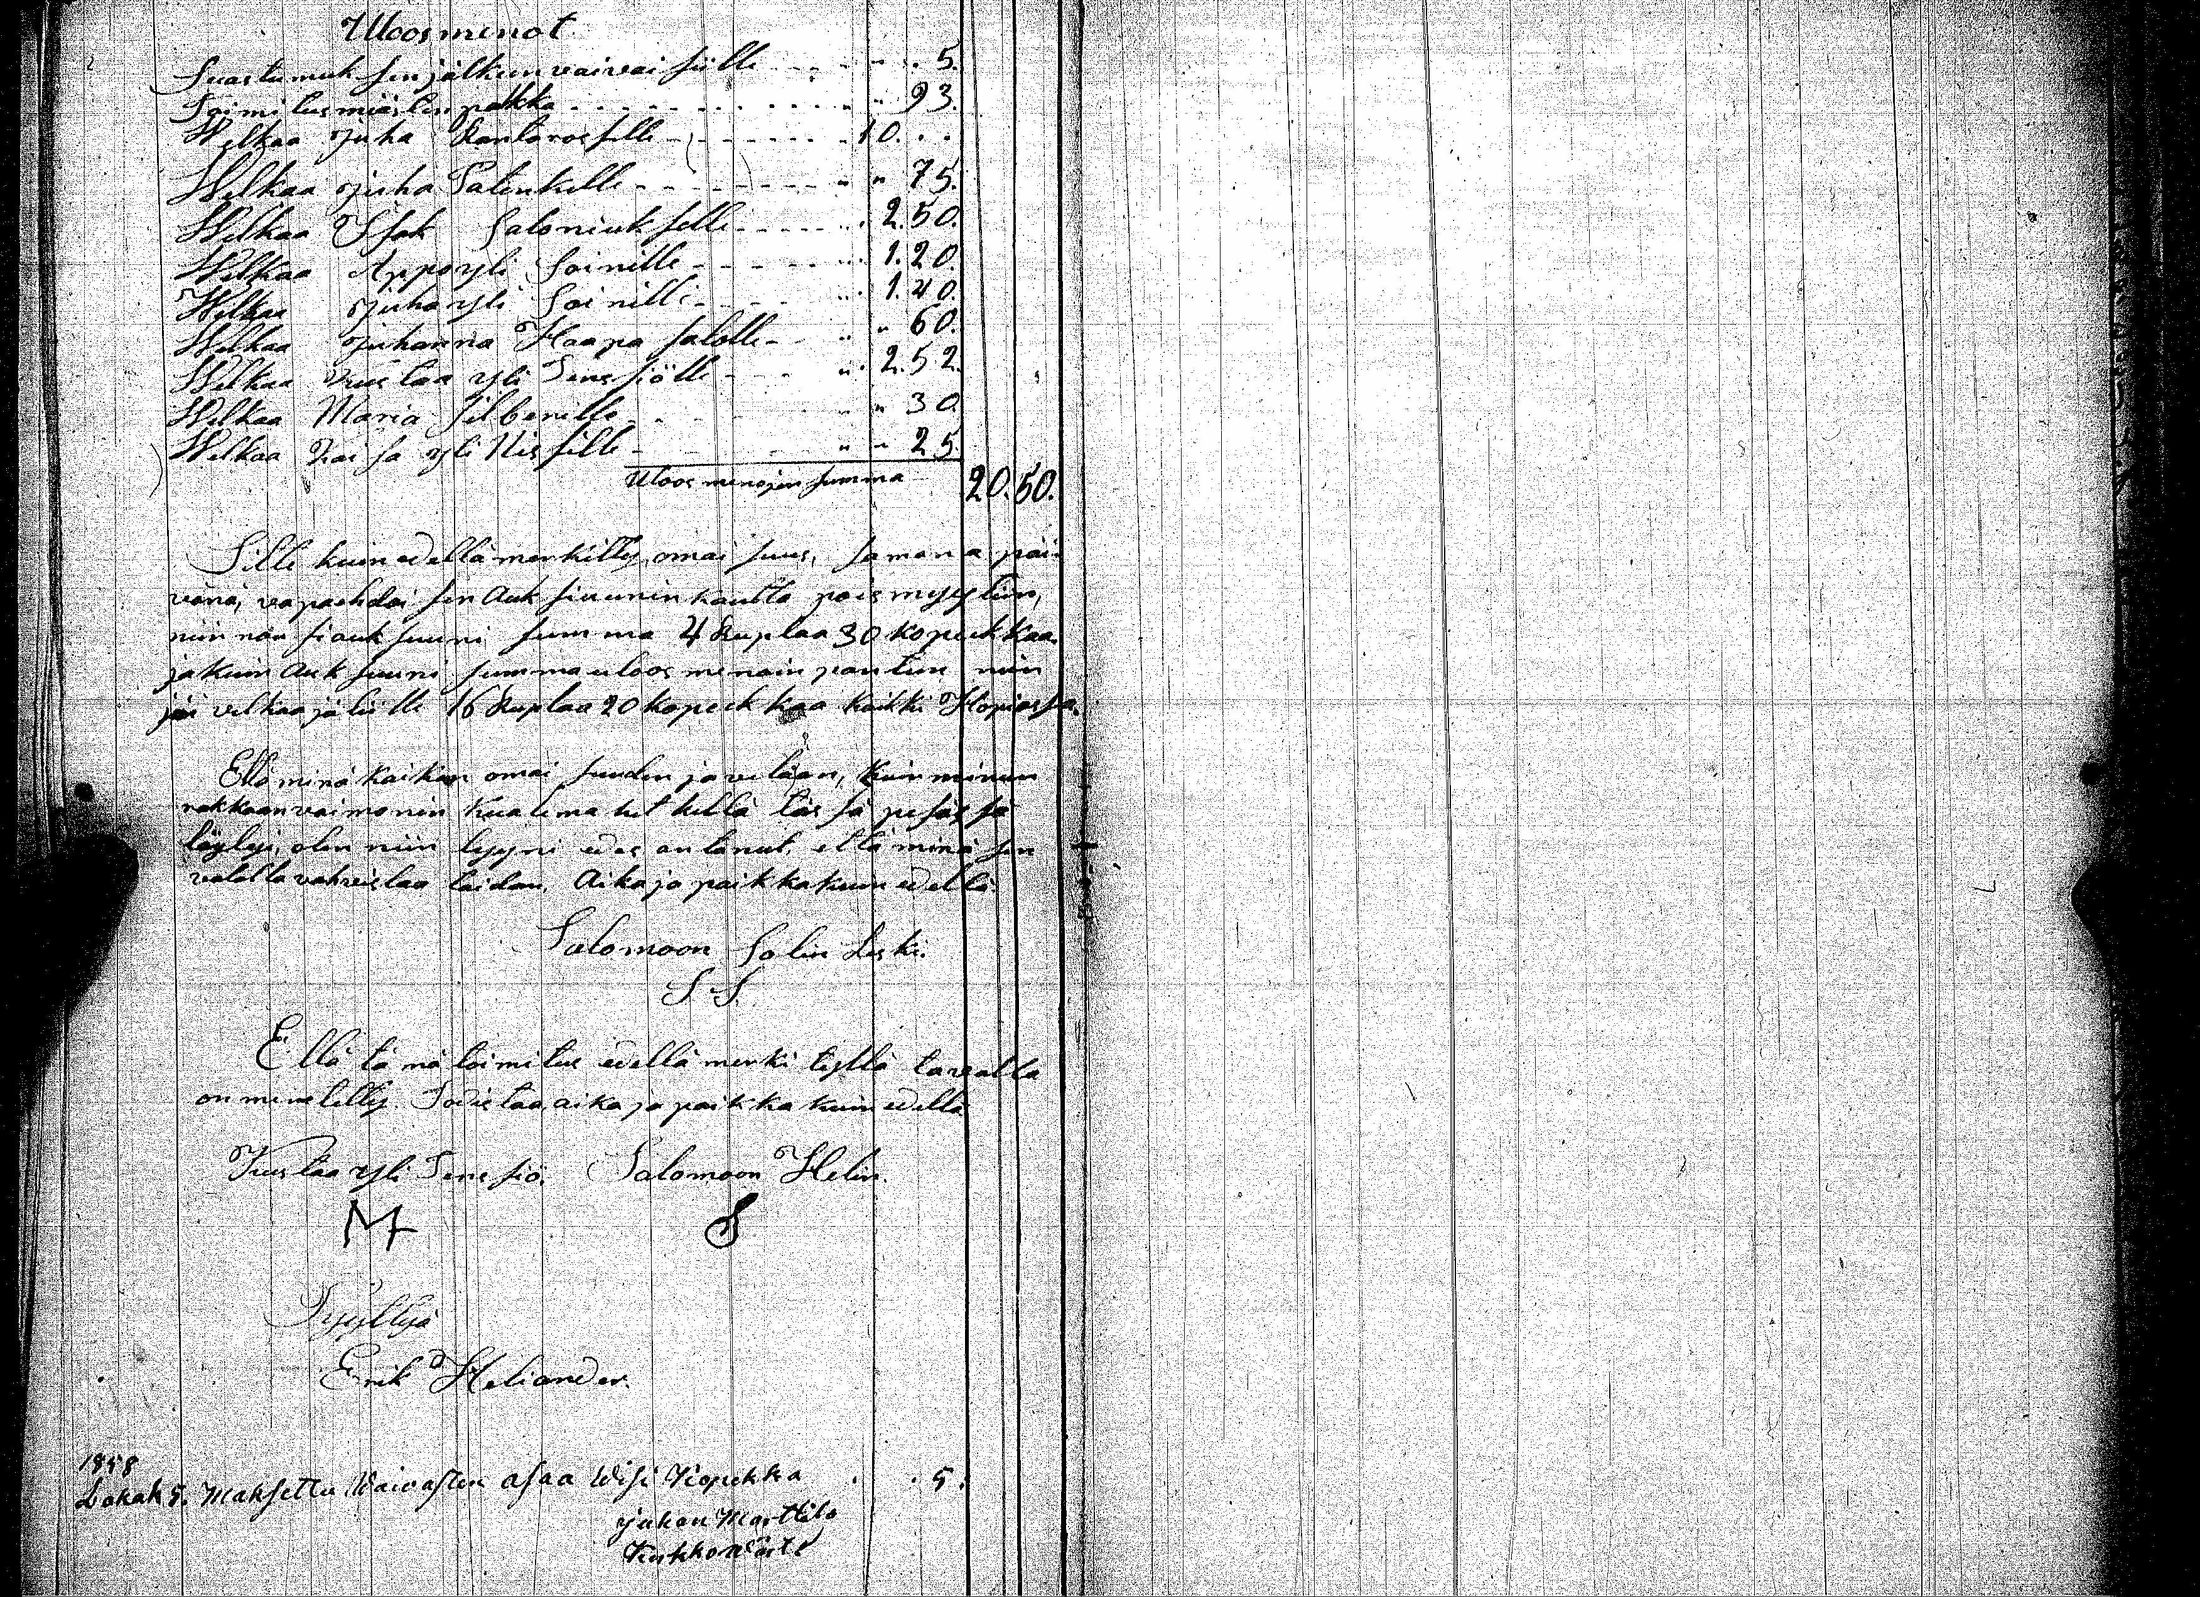 Uloosmenot
Suastumuk sen jälkeen vaivaisille - - - - - " . 5.
Toimitusmiästen palkka - - - - - - - - " 93.
Welkaa Juha Rantarosille - - - - - - - 10. . .
Welkaa Juha Palinkille - - - - - - - " " 75.
Welkaa Isak Saloniukselle - - - - - . 2.50.
Welkaa Appo yli Soinille - - - - - . . 1.20.
Welkaa Juha yli Soinille - - - - . . 1.40.
Welkaa Juhanna Haapasalolle - - " " 60.
Welkaa Kustaa yli Tenssiölle - - - " 2.52.
Welkaa Maria Silbenille - - - - - " 30.
Welkaa Kaisa yli Nissille - - - - " " 25.
Uloosmenojen summa 20.50.
Sille kuin edellä merkitty omaisuus, samana päi-
vänä, vapaehdoisen Auksiuunin kautta pois myytiin,
niin nousi auksuuni summa 4 Ruplaa 30 kopeekkaa.
ja kuin Auksuuni summa uloosmenoin pantiin niin
jäi velkaa jälille 16 Ruplaa 20 kopeekkaa kaikki Hopiassa.
Että minä kaiken omaisuuden ja velaan, kuin minun
rakkaan vaimonin kualema hetkellä tässä pesässä
löytyi, olen niin tyyni edesantanut, että minä sen
valalla vahvistaa taidan. Aika ja paikka kuin edellä.
Salomoon Solin Leski.
S. S.
Että tämä toimitus edellä merkityllä tavalla
on menetelty. Todistaa, aika ja paikka kuin edellä
Kustaa yli Tenssiö. Salomoon Helin.
M S
Erik Heliander.
1858
Lokak 5. Maksettu Waivasten osaa Wisi Kopekka . . 5.
Juhan Marttila
Kirkkoväärti